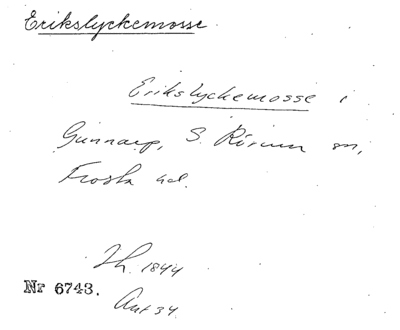 Erikslyckemosse
Erikslyckemosse i
Gunnarp, S. Rörum sn,
Frosta hd.
Th. 1844
Nr 6743.
Ant 34